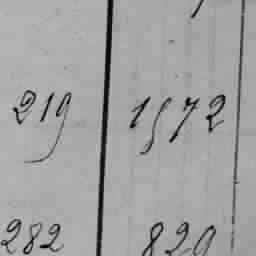 219 1572
282 829